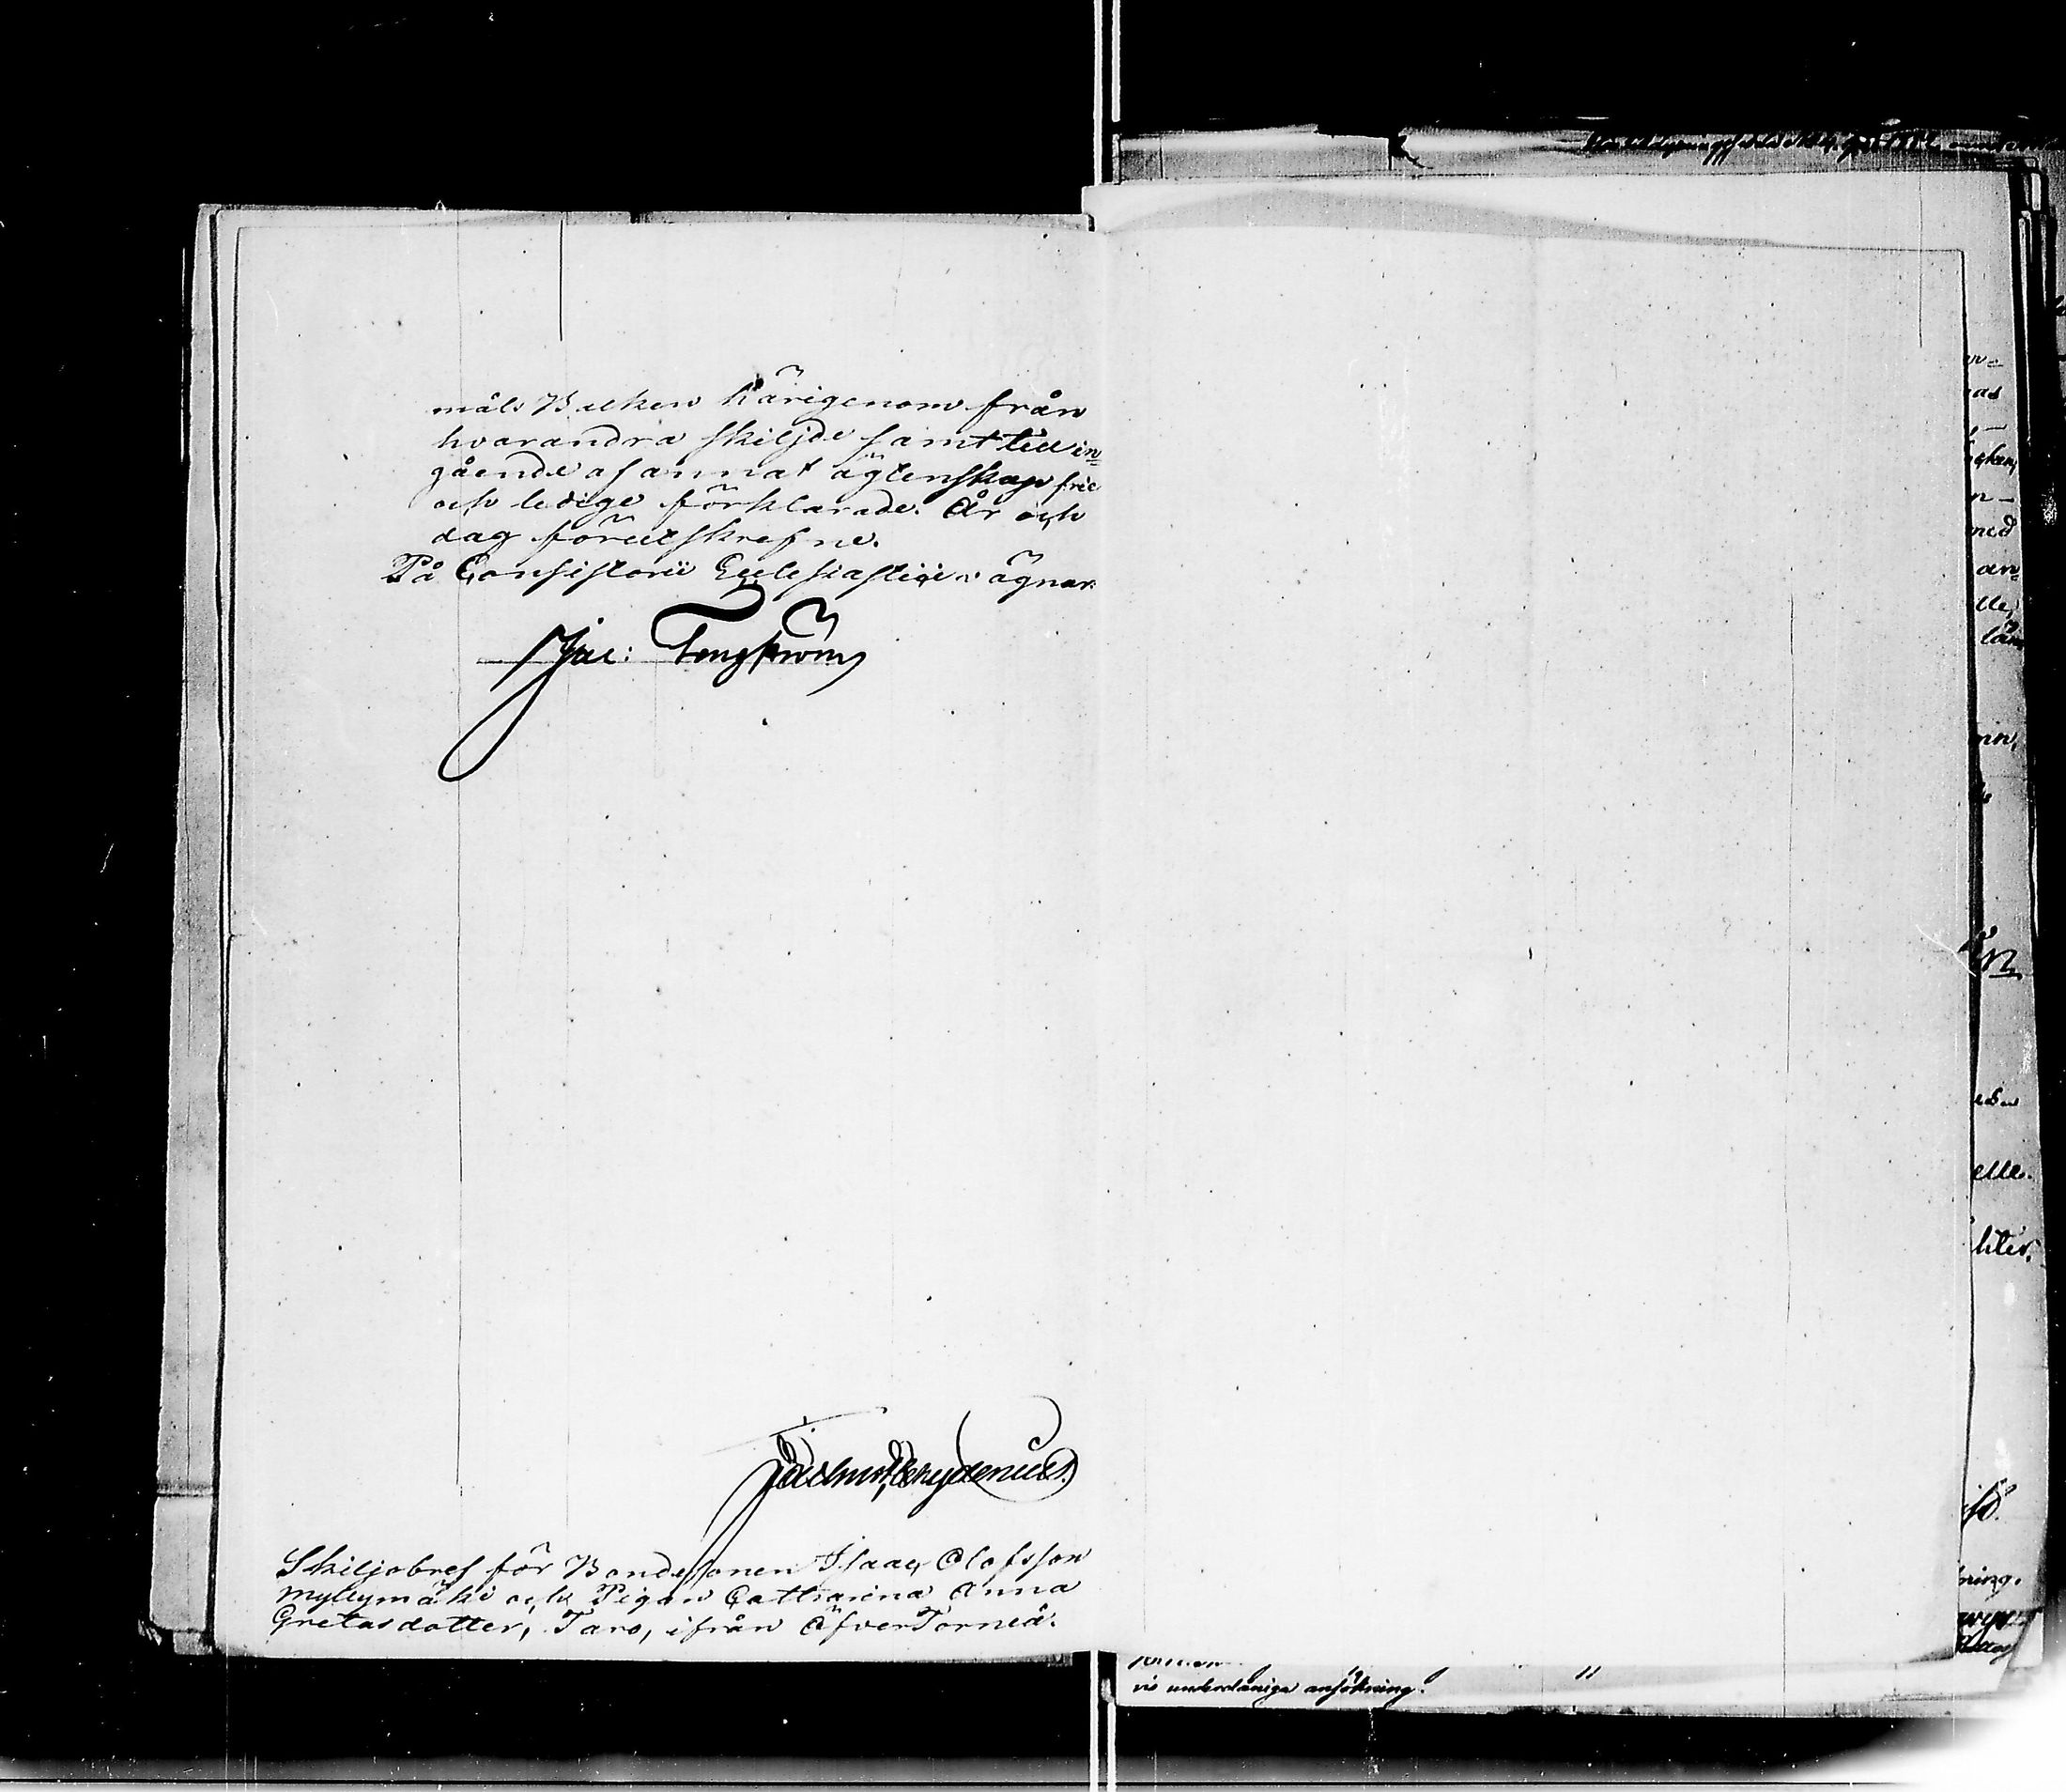 måls Balken härigenom från
hvarandra skiljde samt till in=
gående af annat ägtenskap frie
och ledige förklarade. År och
dag förutskrefne.
På Consistorii Ecclesiastici vägnar
Jac: Tengström
Skiljobref för Bondesonen Isaac Olofsson
Myllymäki och Pigan Catharina Anna
Gretasdotter, Taro, ifrån ÖfverTorneå.
underdåniga ansökning.